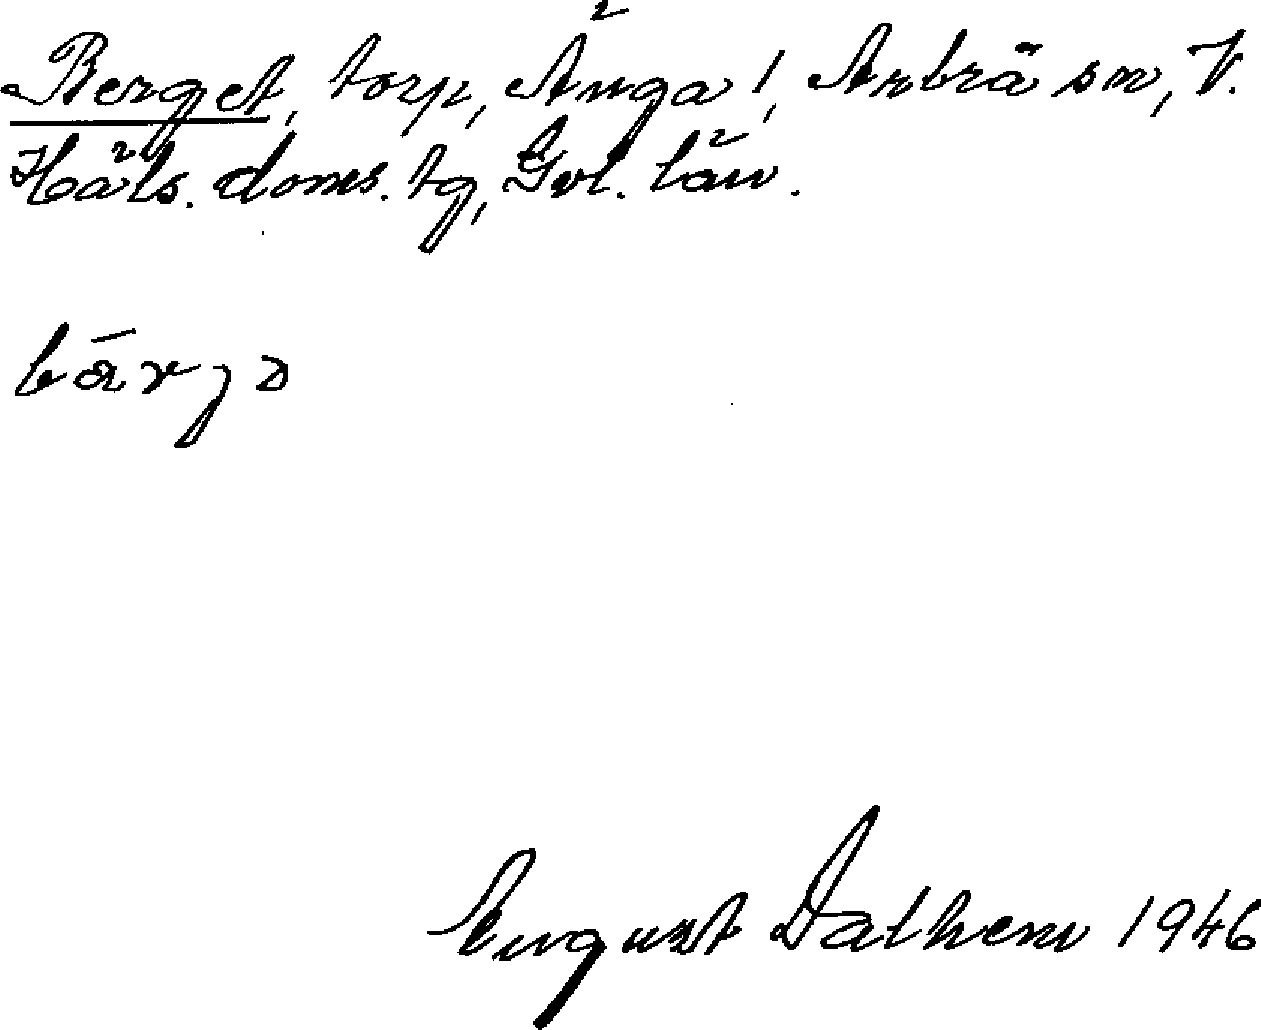 Berget, torp, Änga 1, Arbrå sn, V.
Häls. doms. tg, Gvl. län.
bärjə
August Dalhem 1946